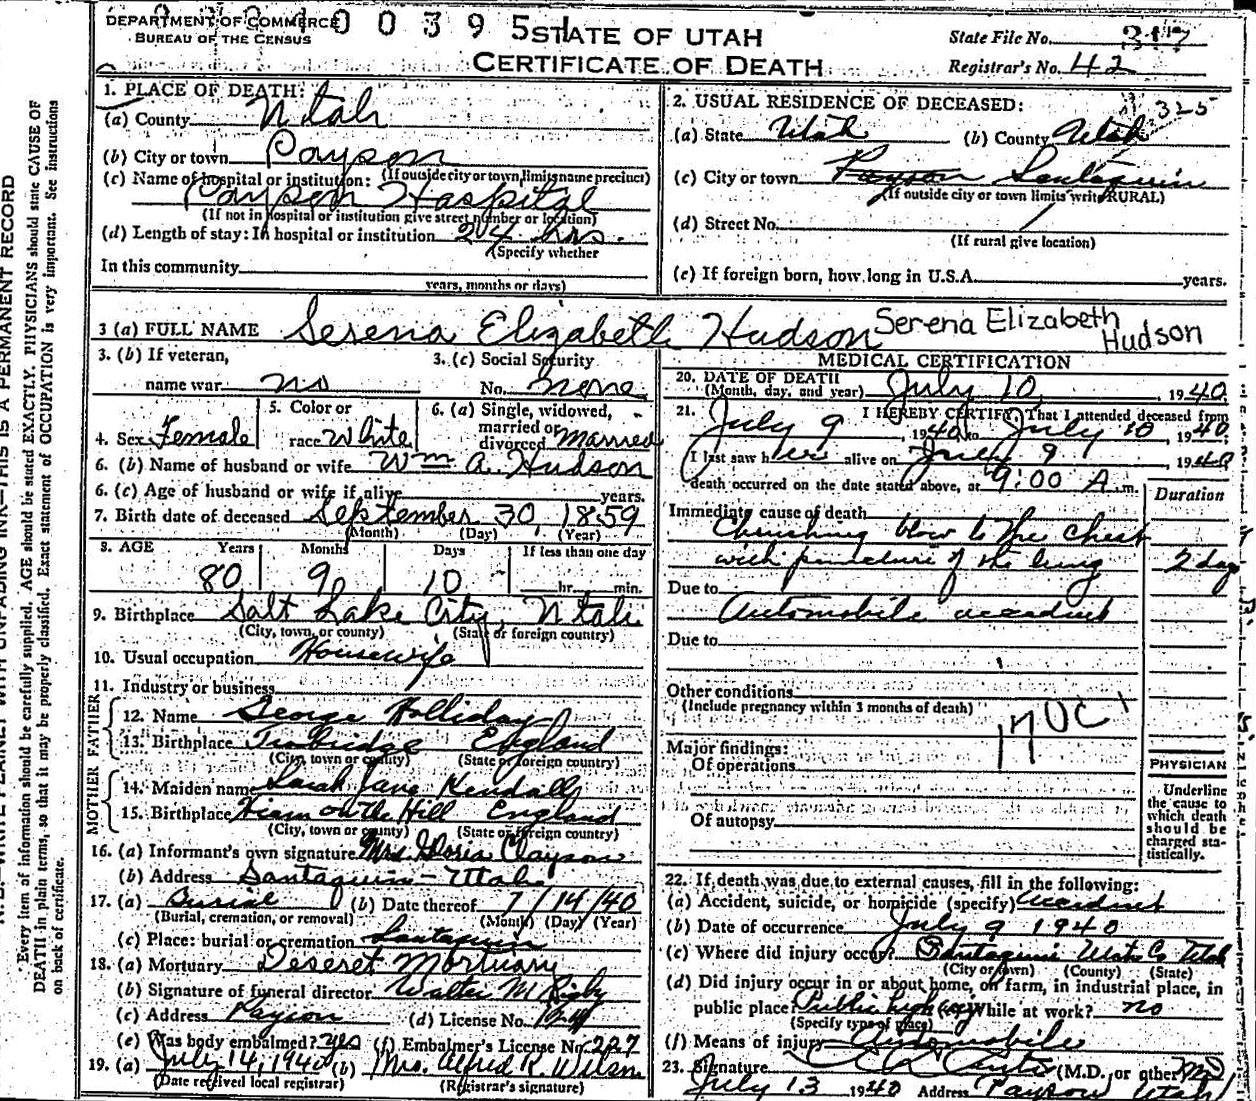 DEPARTMENT OF COMMERCE
BUREAU OF THE CENSUS
0 0 3 9 5
STATE OF UTAH
CERTIFICATE OF DEATH
State File No. 317
Registrar's No. 42
1. PLACE OF DEATH:
(a) County Utah
(b) City or town Payson
(If outside city or town limits name precinct)
(c) Name of hospital or institution:
Payson Hospital
(If not in hospital or institution give street number or location)
(d) Length of stay: In hospital or institution 24 hrs.
(Specify whether
In this community
years, months or days)
2. USUAL RESIDENCE OF DECEASED:
325
(a) State Utah (b) County Utah
(c) City or town Payson Santaquin
(If outside city or town limits write RURAL)
(d) Street No.
(If rural give location)
(e) If foreign born, how long in U.S.A. years.
3 (a) FULL NAME Serena Elizabeth Hudson Serena Elizabeth Hudson
3. (b) If veteran,
name war no
3. (c) Social Security
No. none
4. Sex Female
5. Color or
race White
6. (a) Single, widowed,
married or
divorced Married
6. (b) Name of husband or wife Wm A. Hudson
6. (c) Age of husband or wife if alive years.
7. Birth date of deceased September 30, 1859
(Month) (Day) (Year)
8. AGE Years Months Days If less than one day
80 9 10 hr. min.
9. Birthplace Salt Lake City, Utah
(City, town, or county) (State or foreign country)
10. Usual occupation Housewife
11. Industry or business
FATHER
12. Name George Holliday
13. Birthplace England
(City, town or county) (State or foreign country)
MOTHER
14. Maiden name Sarah Jane Kendall
15. Birthplace on the Hill England
(City, town or county) (State or foreign country)
16. (a) Informant's own signature Mrs. Gloria Clayson
(b) Address Santaquin - Utah
17. (a) Burial (b) Date thereof 7/14/40
(Burial, cremation, or removal) (Month) (Day) (Year)
(c) Place: burial or cremation Santaquin
18. (a) Mortuary Deseret Mortuary
(b) Signature of funeral director Walter M Rigby
(c) Address Payson (d) License No.
(e) Was body embalmed? Yes (f) Embalmer's License No. 227
19. (a) July 14, 1940 (b) Mrs. Alfred R. Wilson
(Date received local registrar) (Registrar's signature)
MEDICAL CERTIFICATION
20. DATE OF DEATH
(Month, day, and year) July 10, 1940
21. I HEREBY CERTIFY, That I attended deceased from
July 9, 1940 to July 10 1940
I last saw her alive on July 9 1940
death occurred on the date stated above, at 9:00 A.m.
Duration
Immediate cause of death
Crushing blow to the chest
with puncture of the lung 2 day
Due to
Automobile accident
Due to
Other conditions
(Include pregnancy within 3 months of death)
Major findings:
Of operations
Of autopsy
PHYSICIAN
Underline
the cause to
which death
should be
charged sta-
tistically.
22. If death was due to external causes, fill in the following:
(a) Accident, suicide, or homicide (specify) accident
(b) Date of occurrence July 9 1940
(c) Where did injury occur? Santaquin Utah Co Utah
(City or town) (County) (State)
(d) Did injury occur in or about home, on farm, in industrial place, in
public place? Public highway While at work? no
(Specify type of place)
(f) Means of injury Automobile
23. Signature (M.D. or other) MD
July 13 1940 Address Payson Utah
Every item of information should be carefully supplied. AGE should be stated EXACTLY. PHYSICIANS should state CAUSE OF
DEATH in plain terms, so that it may be properly classified. Exact statement of OCCUPATION is very important. See instructions
on back of certificate.
WRITE PLAINLY WITH UNFADING INK—THIS IS A PERMANENT RECORD